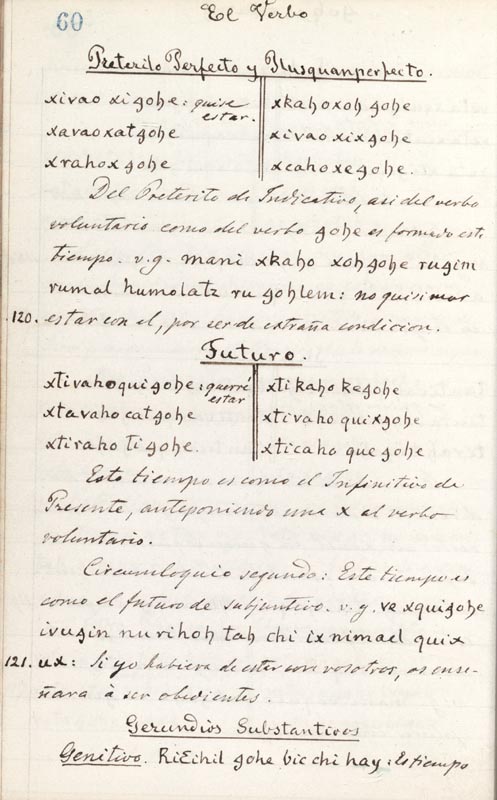 60
El Verbo
Preterito Perfecto y Plusquanperfecto.
xivao xi gohe: quise estar.
xavao xat gohe
xrahox gohe
xkahoxoh gohe
xivao xix gohe
xcahoxe gohe.
Del Preterito de Indicativo, asi del verbo
voluntario como del verbo gohe es formado este
tiempo. v.g. mani xkaho xoh gohe rugim
rumal humolatz ru gohlem: no quisimos
120. estar con el, por ser de extraña condicion.
Futuro.
xtivaho qui gohe: querré estar
xtavaho cat gohe
xtiraho ti gohe.
xti kaho ke gohe
xtivaho quix gohe
xticaho que gohe
Este tiempo es como el Infinitivo de
Presente, anteponiendo una x al verbo
voluntario.
Circumloquio segundo: Este tiempo es
como el futuro de subjuntivo. v.g. ve xqui gohe
ivugin nu rihoh tah chi ix nimael quix
121. ux: Si yo hubiera de estar con vosotros, os ense-
ñara a ser obedientes.
Gerundios Substantivos
Genitivo. RiƐihil gohe bic chi hay: Es tiempo